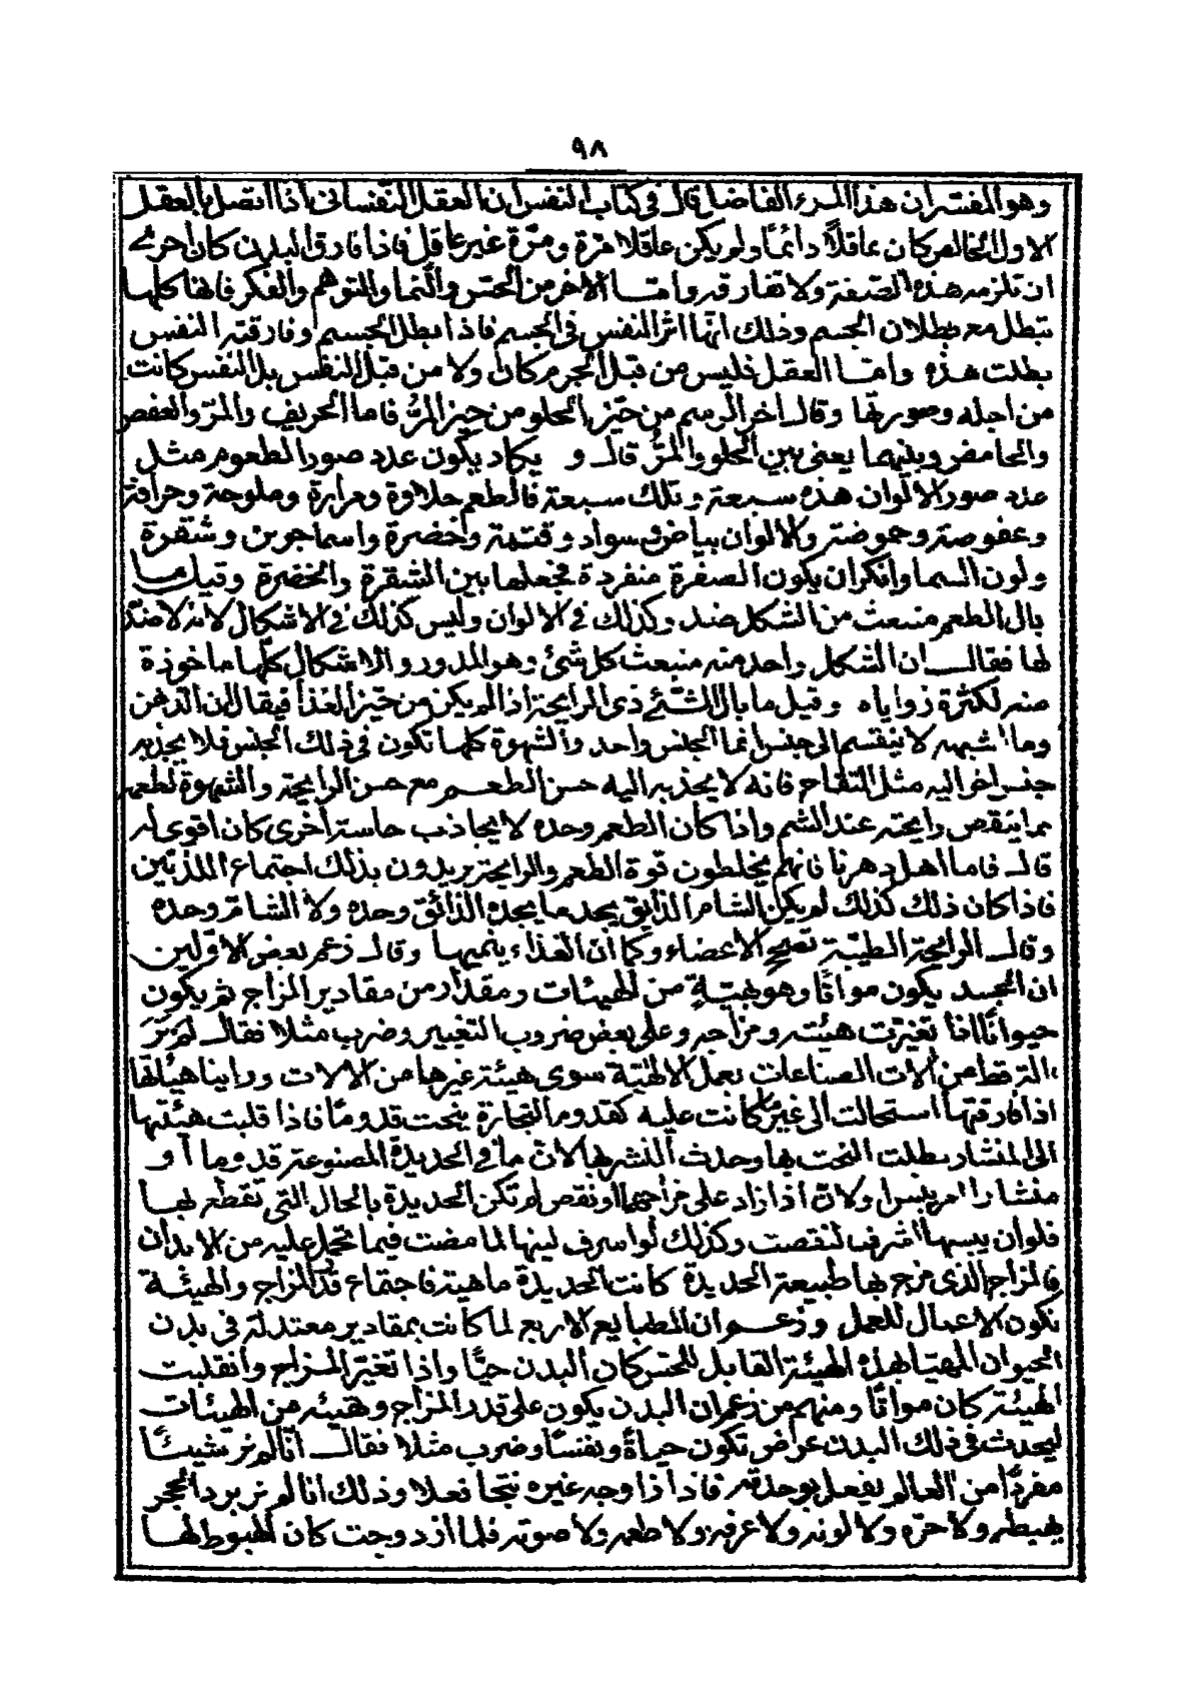 ٩٨
وهو المفسر ان هذا المرء الفاضل قال في كتاب النفس ان العقل النفساني اذا اتصل بالعقل
الاول الخالص كان عاقلاً دائمًا ولم يكن عاقلا مرّة ومرّة غير عاقل فاذا فارق البدن كان احرى
ان تلزمه هذه الصفة ولا تفارقه وامّا الاخر من الحسّ والنما والتوهّم والفكر فانها كلها
تبطل مع بطلان الجسم وذلك انّها اثر النفس في الجسم فاذا بطل الجسم وفارقته النفس
بطلت هذه وامّا العقل فليس من قبل الجرم كان ولا من قبل النفس بل النفس كانت
من اجله وصورتها وقال اخر الرسم من حيّز الحلو من حيز المرّ فاما الحريف والمرّ والعفص
والحامض وبينهما يعنى بين الحلو والمرّ قال و يكاد يكون عدد صور الطعوم مثل
عدد صور الالوان هذه سبعة وتلك سبعة فالطعم حلاوة ومرارة وملوحة وحرافة
وعفوصة وحموضة والالوان بياض سواد وقتمة وخضرة واسماجون وشقرة
ولون السما وانكر ان يكون الصفرة منفردة فجعلها بين الشقرة والخضرة وقيل ما
بال الطعم منبعث من الشكل ضد وكذلك في الالوان وليس كذلك في الاشكال لانه لا ضدّ
لها فقال ان الشكل واحد منه منبعث كل شئ وهو المدور والاشكال كلّها ماخوذة
منه لكثرة زواياه وقيل ما بال الشئ ذى الرايحة اذا لم يكن من حيّز الغذا فيقال ان الذهن
وما اشبهه لا ينقسم الى جنس انما الجنس واحد والشهوة كلها تكون في ذلك الجنس فلا يجذبه
جنس اخر اليه مثل التفاح فانه لا يجذبه اليه حسن الطعم مع حسن الرايحة والشهوة لطعمه
مما ينقص رايحته عند الشم واذا كان الطعم وحده لا يجاذب حاسة اخرى كان اقوى له
قال فاما اهل دهرنا فانهم يخلطون قوة الطعم والرايحة يريدون بذلك اجتماع اللذتين
فاذا كان ذلك كذلك لم يكن الشام الذايق يجد ما يجده الذائق وحده ولا الشامّ وحده
وقال الرايحة الطيّبة تصحح الاعضاء وكما ان الغذاء ينميها وقال زعم بعض الاوّلين
ان الجسد يكون مواتًا وهو بهيئة من الهيئات ومقدار من مقادير المزاج ثم يكون
حيوانًا اذا تغيرت هيئته ومزاجه وعلى بعض ضروب التغيير وضرب مثلا فقال لم نَرَ
الة قط من الات الصناعات بعمل الا لهيّة سوى هيئة غيرها من الالات وراينا هيئاتها
اذا فارقتها استحالت الى غير ما كانت عليه كقدوم النجارة ينحت قدومًا فاذا قلبت هئيتها
الى المنشار بطلت النحت بها وحدث النشر بها لانّ ما في الحديدة المصنوعة قدوما او
منشارا امر يبس ولانّ اذا زاد على مزاجهما او نقص لم تكن الحديدة بالحال التي تقطع بها
فلو ان يبسها اشرف لنقصت وكذلك لو اسرف لينها لما مضت فيما تحمل عليه من الابدان
فالمزاج الذى مزج بها طبيعة الحديدة كانت الحديدة ماهية فاجتماع قدّ المزاج والهيئة
تكون الاعمال للعمل وزعم ان الطبايع الاربع لما كانت بمقادير معتدلة في بدن
الحيوان المهيّا بهذه الهيئة القابل للحس كان البدن حيًّا واذا تغيّر المزاج وانقلبت
الهيئة كان مواتًا ومنهم من زعم ان البدن يكون على قدر المزاج وبهيئه من الهيئات
ليحدث في ذلك البدن عراض تكون حياةً ونفسًا وضرب مثلا فقال انّا لم نر شيئًا
مفردًا من العالم يفعل بوحدته فاذا ازاوجه غيره نتجا فعلا وذلك انا لم نر برد الحجر
يهبطه ولا حرّه ولا لونه ولا عرفه ولا طعمه ولا صوته فلما ازدوجت كان الهبوط لها